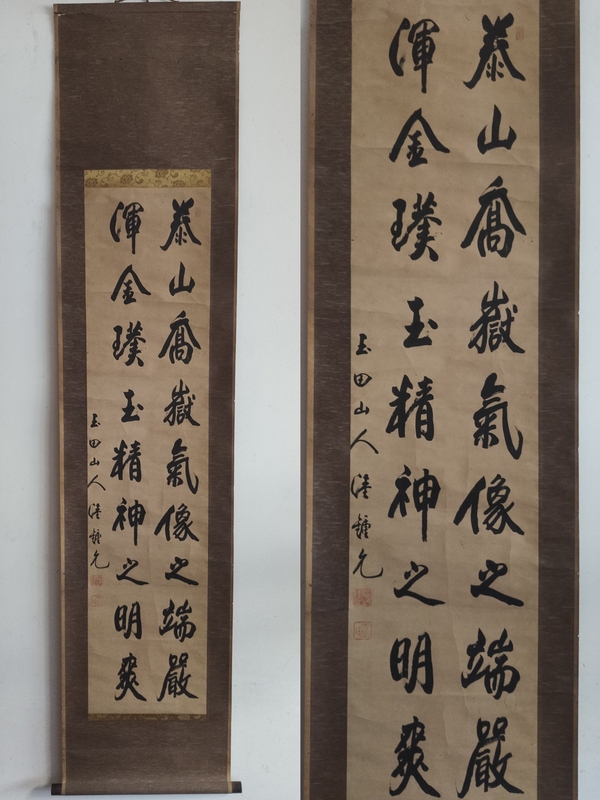 泰山喬嶽氣像之端嚴
渾金璞玉精神之明爽
玉田山人
泰山喬嶽氣像之端嚴
渾金璞玉精神之明爽
玉田山人